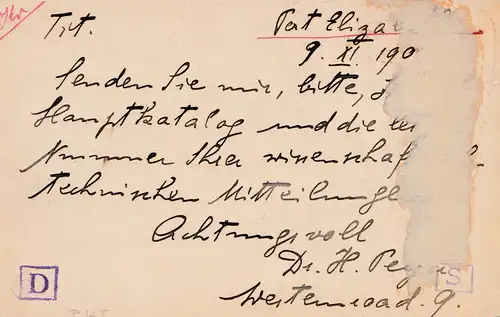 Tit.
Port Eliza
9. XI. 190
Senden Sie mir, bitte,
Hauptkatalog und die
Nummer Ihrer wissenschaf
technischen Mitteilunge
Achtungsvoll
Dr. H. Pe
Westernroad. 9.
D
S